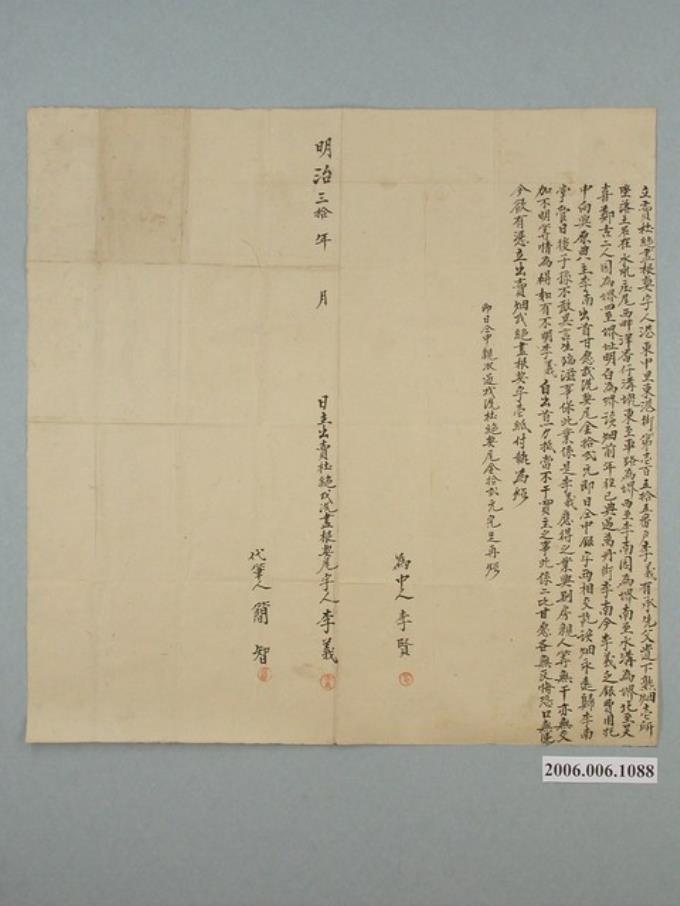 立賣杜絕盡根契字人港東中里東港街第壹百五拾五番戶李義有承先父遺下熟烟壹所
墜落土名在水吼庄尾西畔洋番仔溝墘東至車路為界西至李南園為界南至水溝為界北至吳
喜鄭吉二人園為界四至界址明白為界該烟前年經已典過萬丹街李南今李義乏銀費用託
中向與原典主李南出首甘愿找洗契尾金拾貳元即日仝中銀字兩相交訖該烟永遠歸李南
掌管日後子孫不敢異言生端滋事保此業係是李義應得之業與別房親人等無干亦無交
加不明等情為碍如有不明李義自出首一力抵當不干買主之事此係二比甘愿各無反悔恐口無憑
今欲有憑立出賣烟找絕盡根契字壹紙付執為炤
即日仝中親收過找洗杜絕契尾金拾貳元完足再炤
為中人 李賢
明治三拾年 月 日立出賣杜絕找洗盡根契尾字人 李義
代筆人 簡智
2006.006.1088